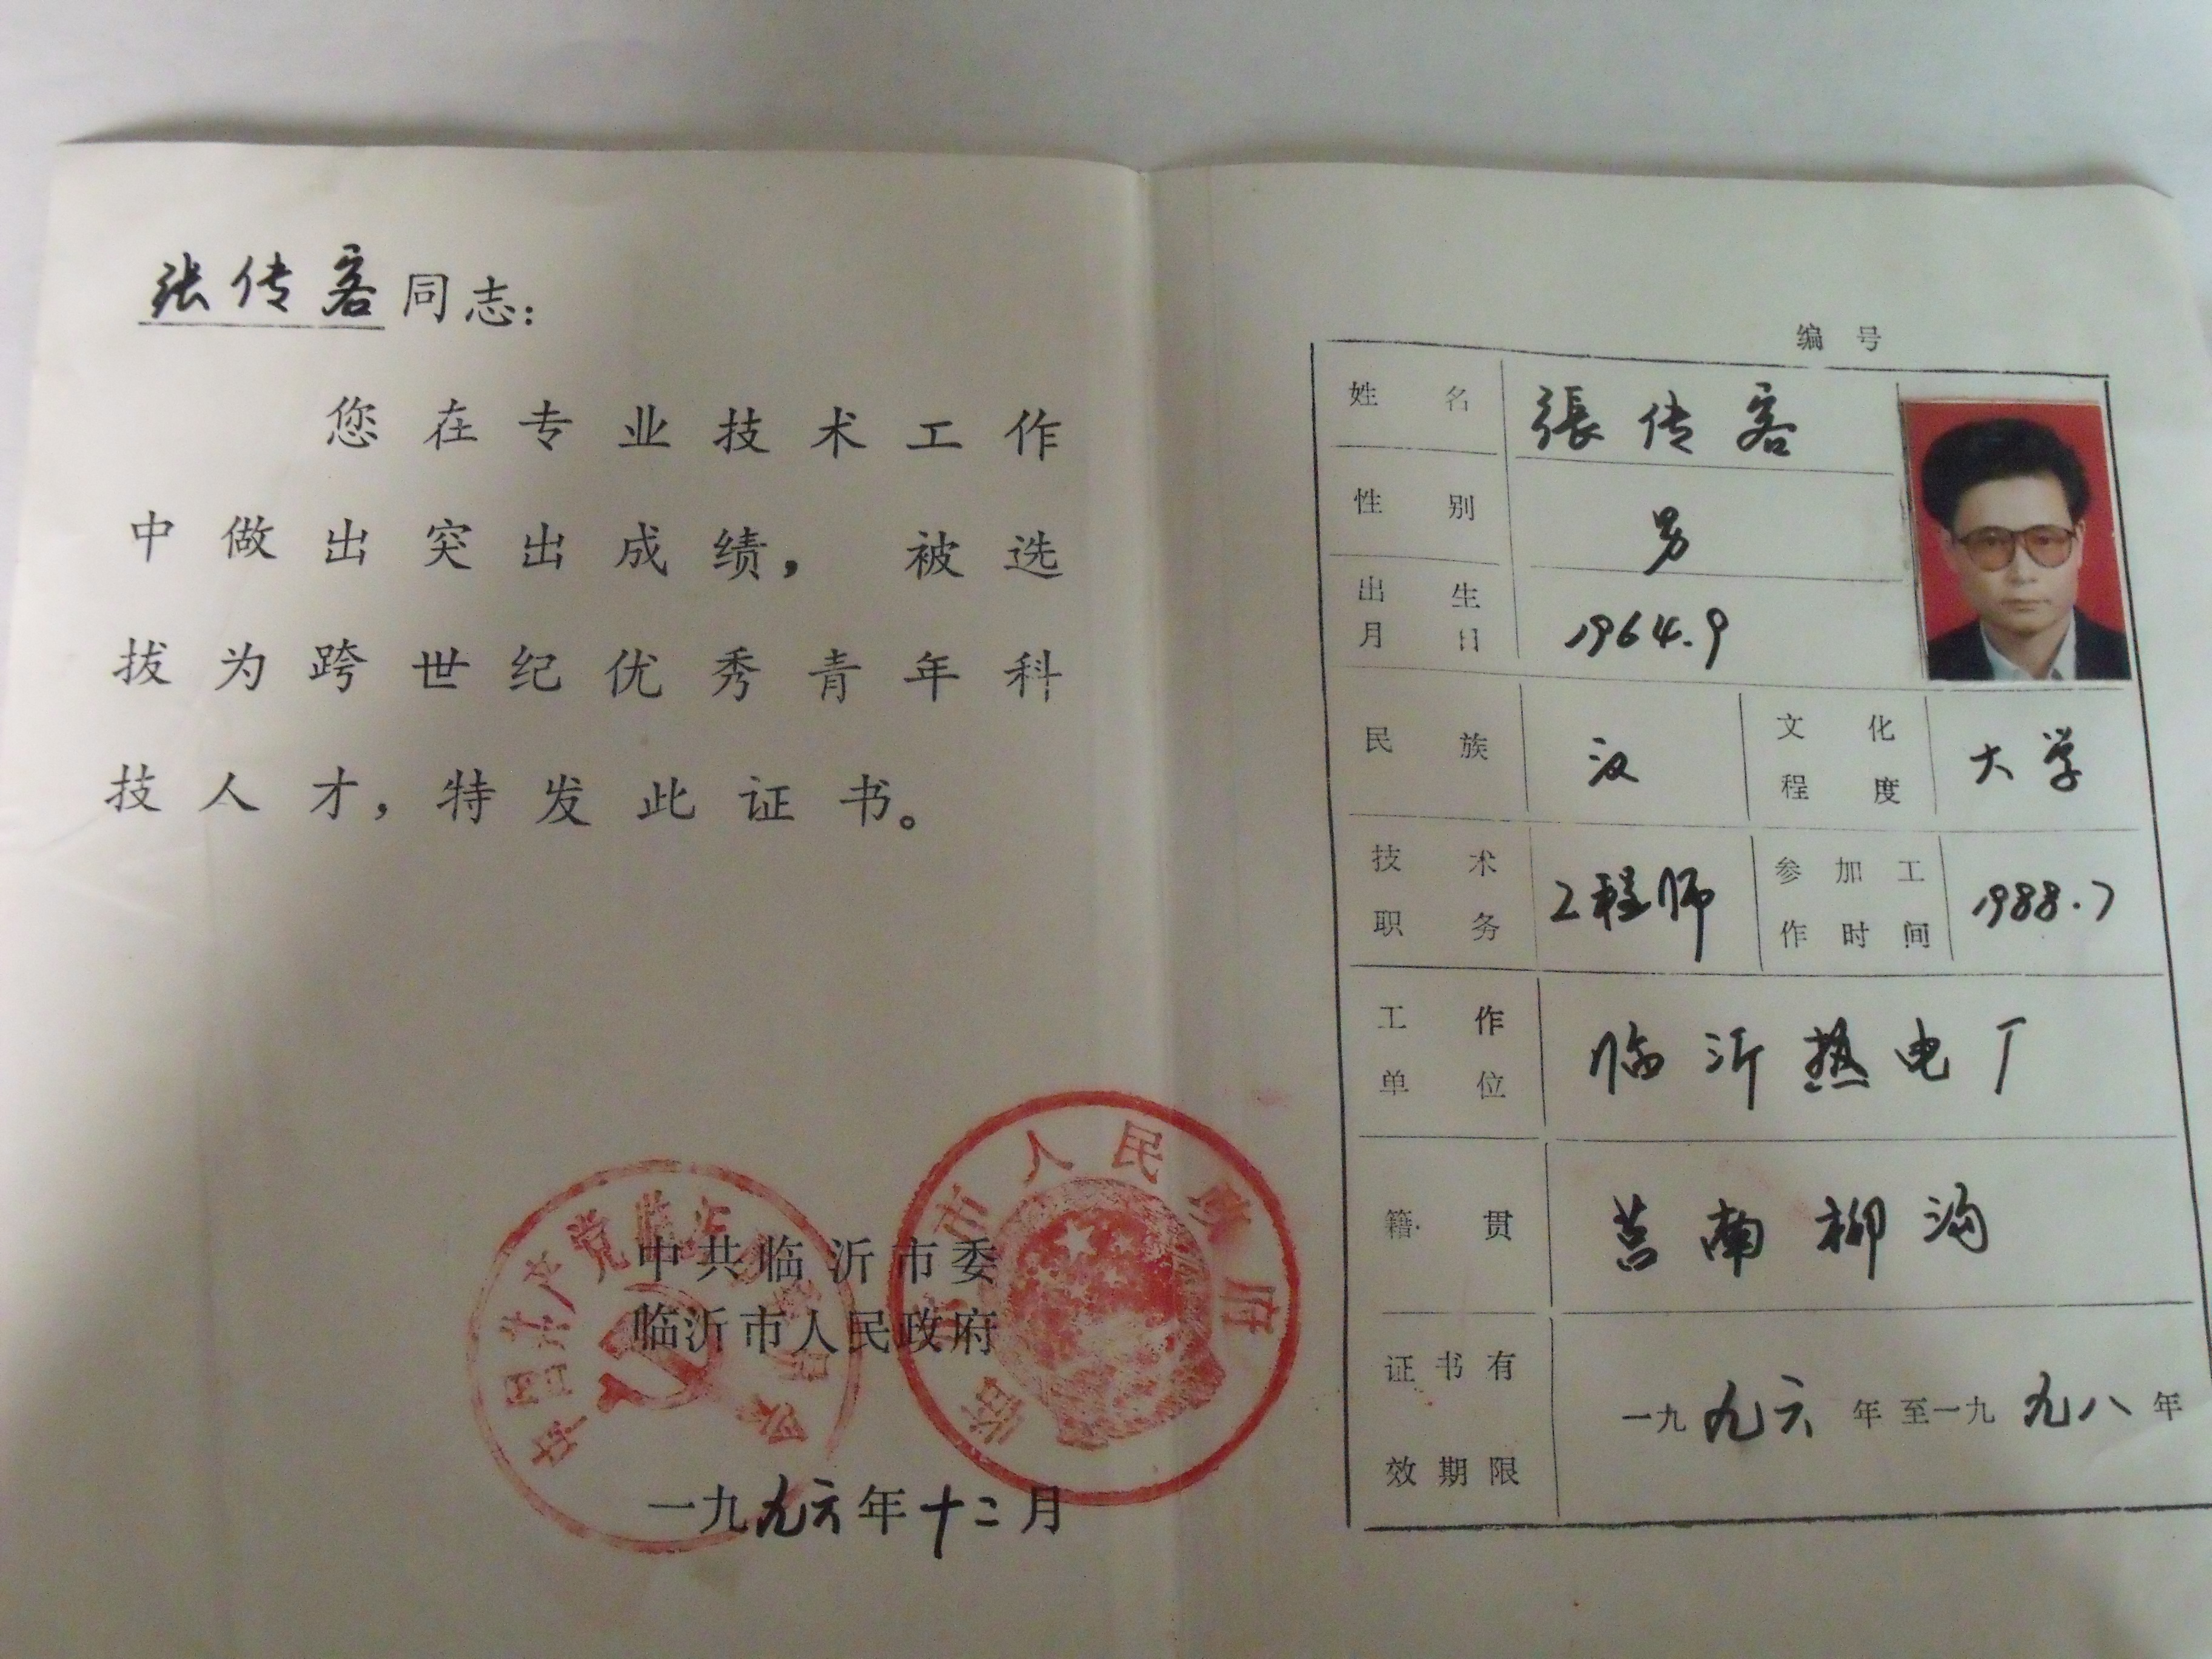 张传客同志：
您在专业技术工作
中做出突出成绩，被选
拔为跨世纪优秀青年科
技人才，特发此证书。
中共临沂市委
临沂市人民政府
一九九六年十二月
中国共产党临沂市委员会
临沂市人民政府
编号
姓名 張传客
性别 男
出生月日 1964.9
民族 汉 文化程度 大学
技术职务 工程师 参加工作时间 1988.7
工作单位 临沂热电厂
籍贯 莒南柳沟
证书有效期限 一九九六年至一九九八年